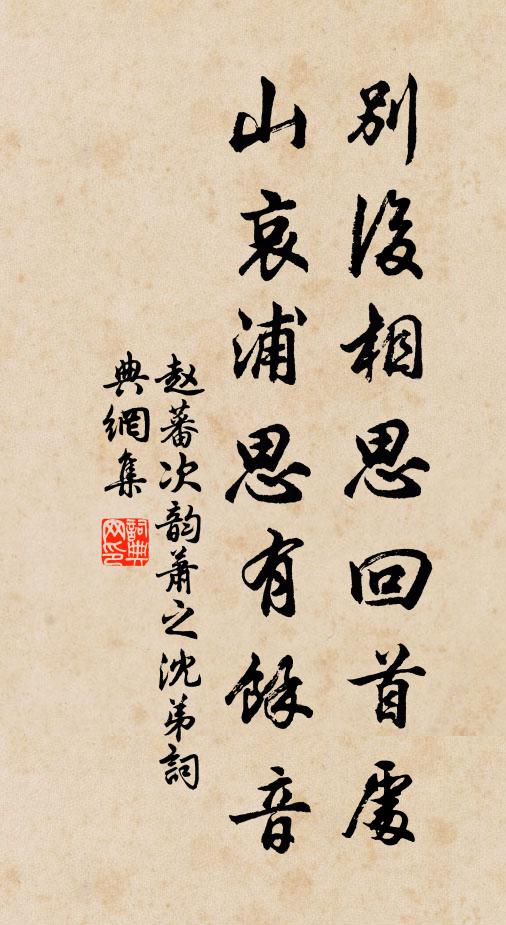 別後相思回首處
山哀浦思有餘音
赵蕃次韵萧之沈弟詞
典網集
詞典网印